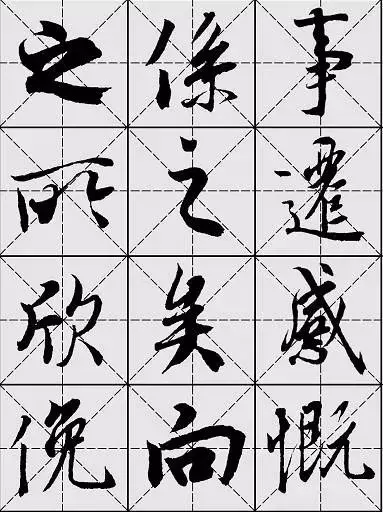 事遷感慨
係之矣向
之所欣俛